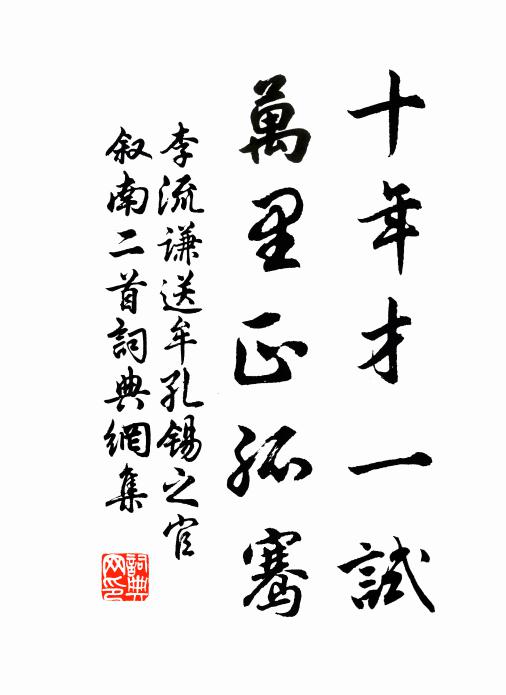 十年才一試
萬里正孤騫
李流謙送牟孔錫之官
叙南二首詞典網集
詞典
网印